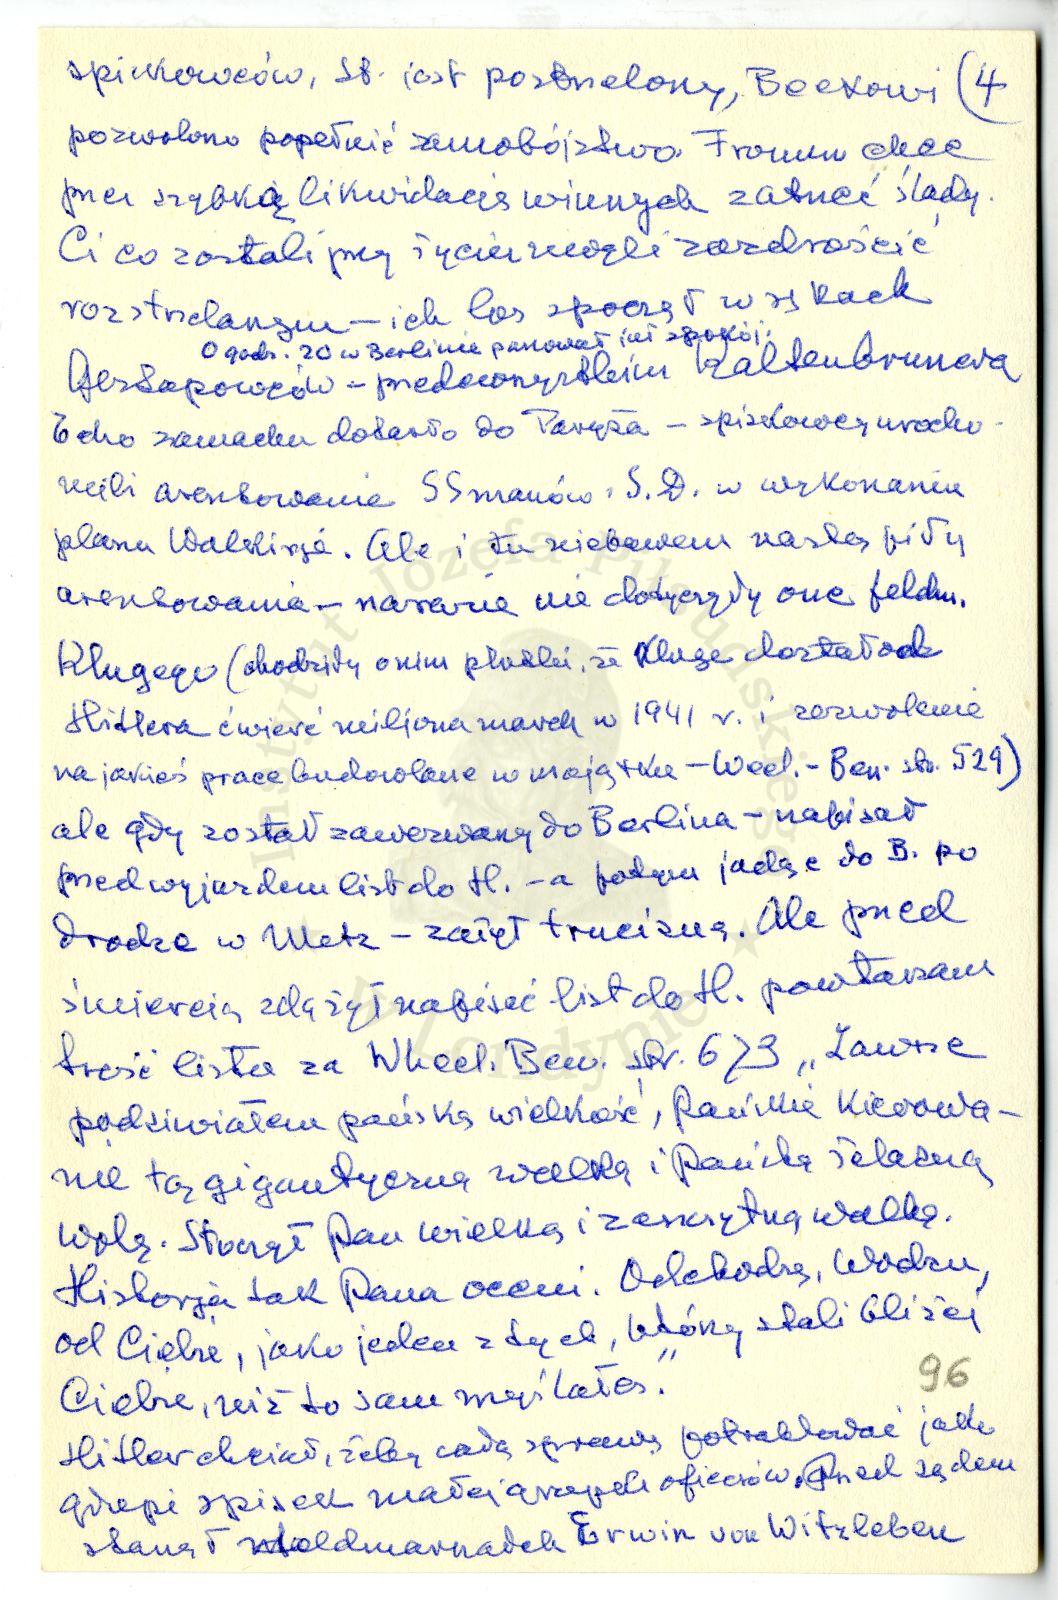 spiskowców, St. jest postrzelony, Beckowi (4
pozwolono popełnić samobójstwo. Fromm chce
przez szybką likwidację winnych zatrzeć ślady.
Ci co zostali przy życiu mogli zazdrościć
rozstrzelanym – ich los spoczął w rękach
O godz. 20 w Berlinie panował już spokój.
Gestapowców – przedewszystkim Kaltenbrunera
Echo zamachu dotarło do Paryża – spiskowcy urucho-
mili aresztowanie SSmanów i S.D. w wykonaniu
planu Walkirja. Ale i tu niebawem nastąpiły
aresztowania – narazie nie dotyczyły one feldm.
Klugego (chodziły o nim plotki, że Kluge dostał od
Hitlera ćwierć miljona marek w 1941 r. i zezwolenie
na jakieś prace budowlane w majątku – Weel. – Ben. str. 529)
ale gdy został zawezwany do Berlina – napisał
przed wyjazdem list do H. – a potym jadąc do B. po
drodze w Metz – zażył truciznę. Ale przed
śmiercią zdążył napisać list do H. powtarzam
treść listu za Wheel. Ben. str. 673 „Zawsze
podziwiałem pańską wielkość, Pańskie kierowa-
nie tą gigantyczną walką i Pańską żelazną
wolę. Stoczył Pan wielką i zaszczytną walkę.
Historja tak Pana oceni. Odchodzę, Wodzu,
od Ciebie, jako jeden z tych, którzy stali bliżej
Ciebie, niż to sam myślałeś."
96
Hitler chciał, żeby całą sprawę potraktować jako
głupi spisek małej grupki oficerów. Przed sądem
stanął feldmarszałek Erwin von Witzleben
Instytut Józefa Piłsudskiego
w Londynie